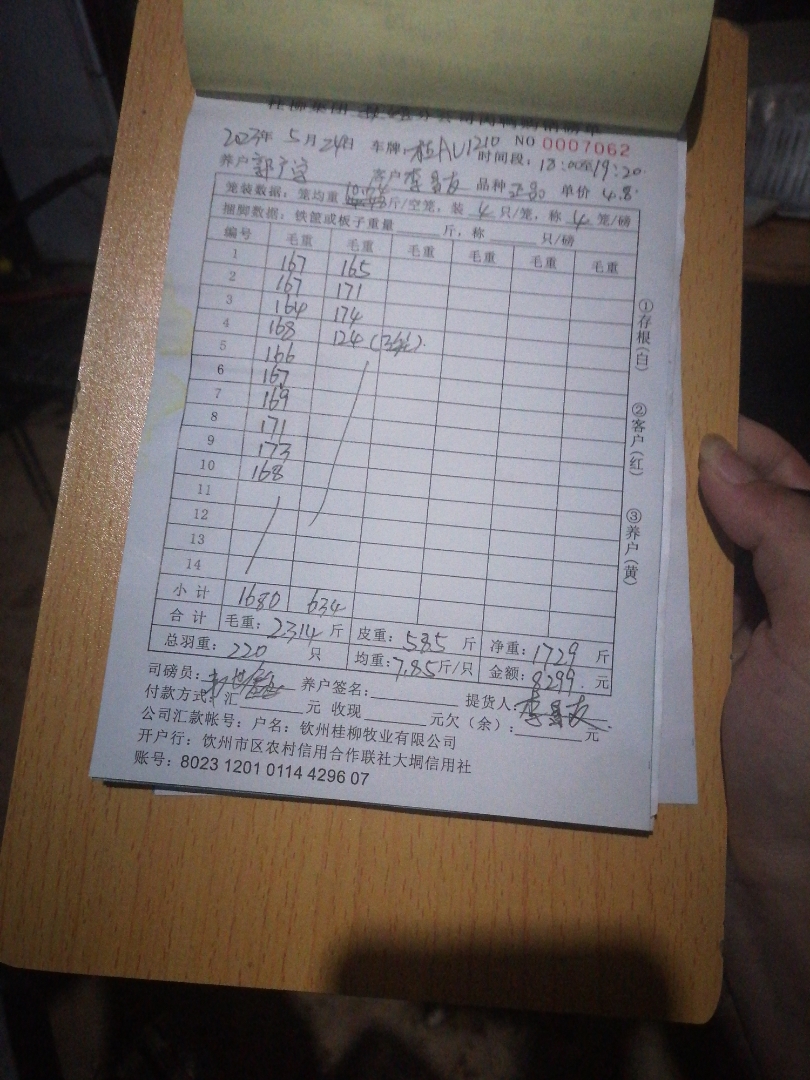 2023年 5月24日 车牌:桂AU1210 NO 0007062
养户 客户 品种 正品 单价 4.8 时间段: 18:00至19:20
笼装数据: 笼均重 10.64 斤/空笼, 装 4 只/笼, 称 4 笼/磅
捆脚数据: 铁筐或板子重量 斤, 称 只/磅
编号 毛重 毛重 毛重 毛重 毛重 毛重
1 167 165
2 167 171
3 164 174
4 168 124 (3笼)
5 166
6 167
7 169
8 171
9 173
10 168
11
12
13
14
小计 1680 634
合计 毛重: 2314 斤 皮重: 585 斤 净重: 1729 斤
总羽重: 220 只 均重: 7.85 斤/只 金额: 8299 元
司磅员: 养户签名: 提货人:
付款方式: 汇 元 收现 元欠(余): 元
公司汇款帐号: 户名: 钦州桂柳牧业有限公司
开户行: 钦州市区农村信用合作联社大垌信用社
账号: 8023 1201 0114 4296 07
①存根(白)
②客户(红)
③养户(黄)